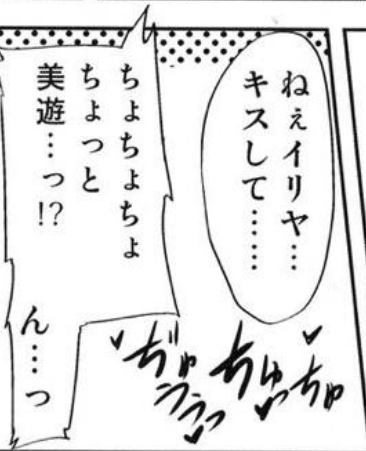 ねぇイリヤ…
キスして………
ちょちょちょ
ちょっと
美遊…っ!?
ん…っ
ちゅ
ちゅっ
ぢゅううっ